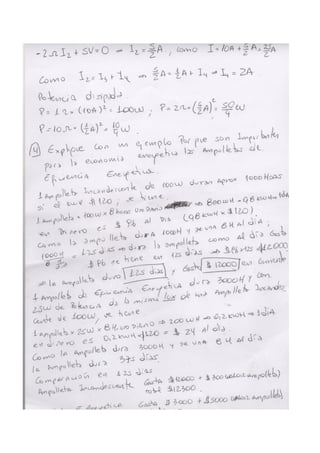 -2Ω I₂ + 5V = 0 → I₂ = 5/2 A , como I = 10A + 5/2 A = 25/2 A
Como I₂ = I₃ + I₄ → 5/2 A = 1/2 A + I₄ → I₄ = 2A
Potencia disipada
P = 1Ω · (10A)² = 100W ; P = 2Ω · (5/2 A)² = 50/4 W
P = 10Ω · (1/2 A)² = 10/4 W
④ Explique con un ejemplo Por que son Importantes
para la economia energetica las Ampolletas de
Eficiencia Energetica.
1 Ampolleta Incandescente de 100W duran aprox 1000Horas
si el kwh $120 ; se tiene
1 Ampolleta × 100W × 8 horas un Diario → 800WH → 0,8KWH
en Dinero es $ 96 Al Dia (0,8KWH × $120) ;
Como la ampolleta dura 1000H y se usa 8H al dia ;
1000H = 125 dias → dura la ampolleta como al dia Gasta
$ 96 se tiene en 125 dias → $ 96 × 125 = $12000
→ la ampolleta duro 125 dias y Gasto $12000 en
1 Ampolleta de Eficiencia Energetica dura 3000H y con
25W de Potencia da la misma Luz de una Ampolleta Incandes
cente de 100W, se tiene
1 Ampolleta × 25W × 8H un DIARIO → 200WH → 0,2KWH → 1 dia
en dinero es 0,2KWH × $120 = $ 24 al dia.
Como la Ampolleta dura 3000H y se usa 8H al dia
la Ampolleta dura 375 dias
Comparación en 125 dias
Ampolleta Incandescente Gasta $12000 + $300 (valor ampolleta)
total $12300
Energetica Gasta $3000 + $5000 (valor ampolleta)